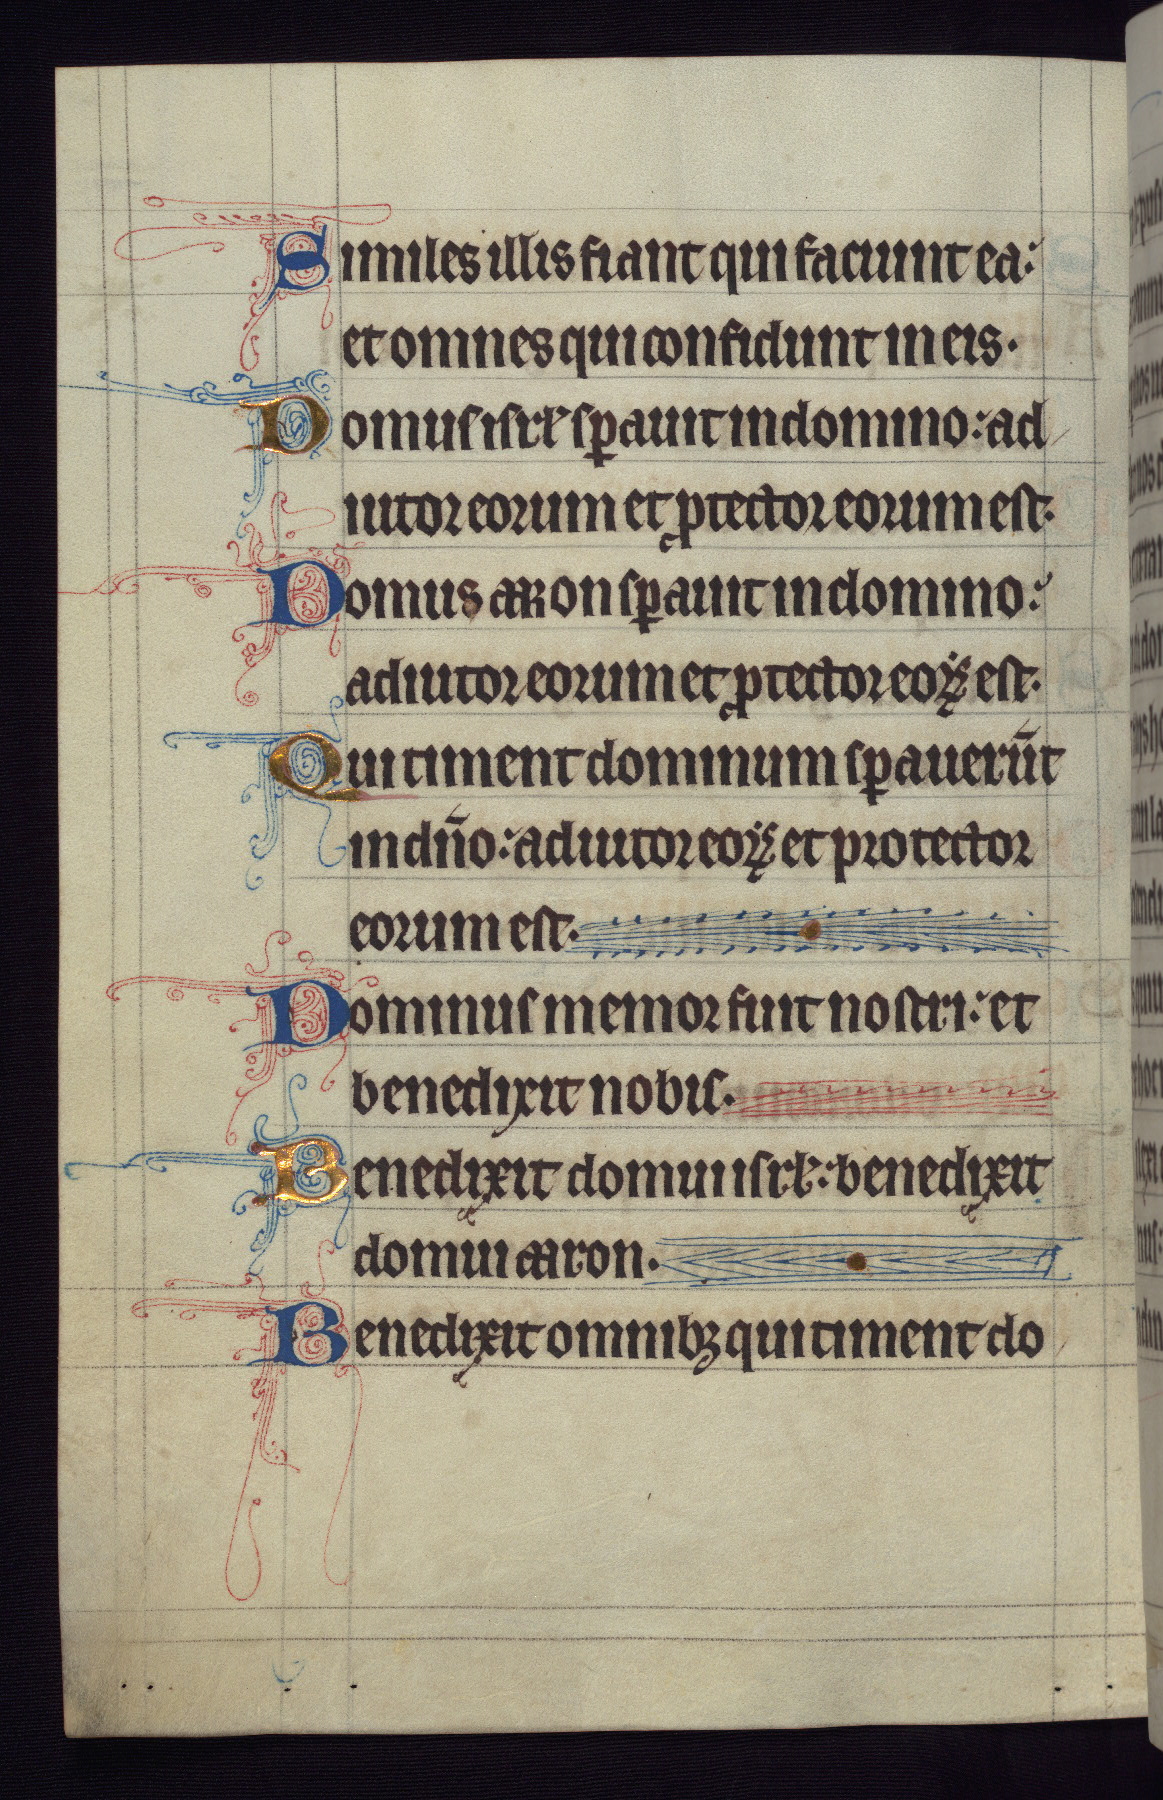 Similes illis fiant qui faciunt ea:
et omnes qui confidunt in eis.
Domus isrł sꝑauit in domino: ad
iutor eorum et ꝓtector eorum est.
Domus aaron sꝑauit in domino:
adiutor eorum et ꝓtector eoꝝ est.
Qui timent dominum sꝑauerūt
in dño: adiutor eoꝝ et protector
eorum est.
Dominus memor fuit nostri: et
benedixit nobis.
Benedixit domui isrł: benedixit
domui aaron.
Benedixit omnibꝫ qui timent do